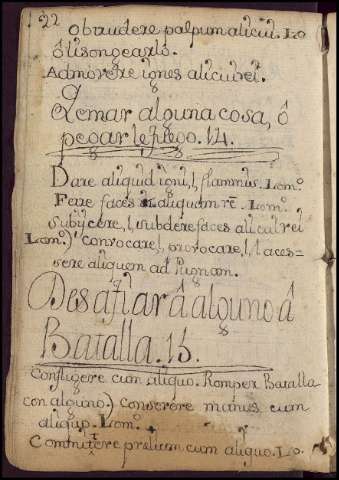 22
obtrudere palpum alicui. Lo
ô lisongearlo.
Admovere ignes alicui rei.
Qemar alguna cosa, ô
pegarle fuego. 14.
Dare aliquid igni, l, flammis. Lom.º
Fere faces in aliquam rē. Lom.º
subijcere, l, subdere faces alicui rei
Lom.º) convocare, l, provocare, l, laces=
sere aliquem ad Pugnam.
Desafiar á alguno á
Batalla. 15.
Confligere cum aliquo. Romper Batalla
con alguno.) conserere manus cum
aliquo. Lom.º
Committere prelium cum aliquo. Lo.